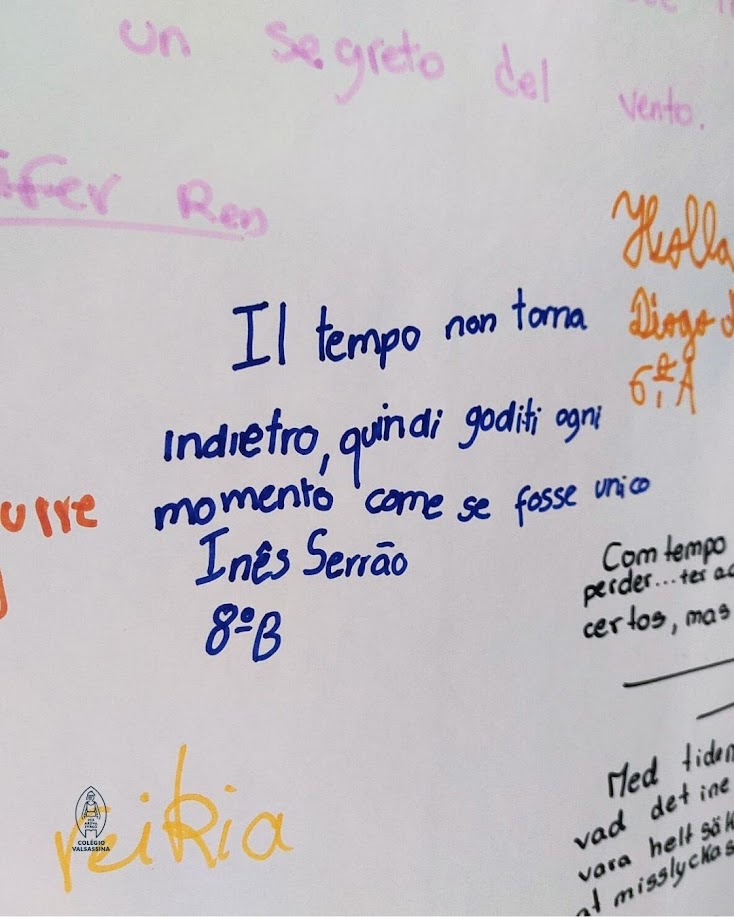 un segreto del vento.
Il tempo non torna
indietro, quindi goditi ogni
momento come se fosse unico
Inês Serrão
8ºB
Holla
Diogo
6ª A
urre
Com tempo
perder... ter
certos, mas
Med tiden
vad det ine
vara helt säk
misslyckas
reikia
COLÉGIO
VALSASSINA